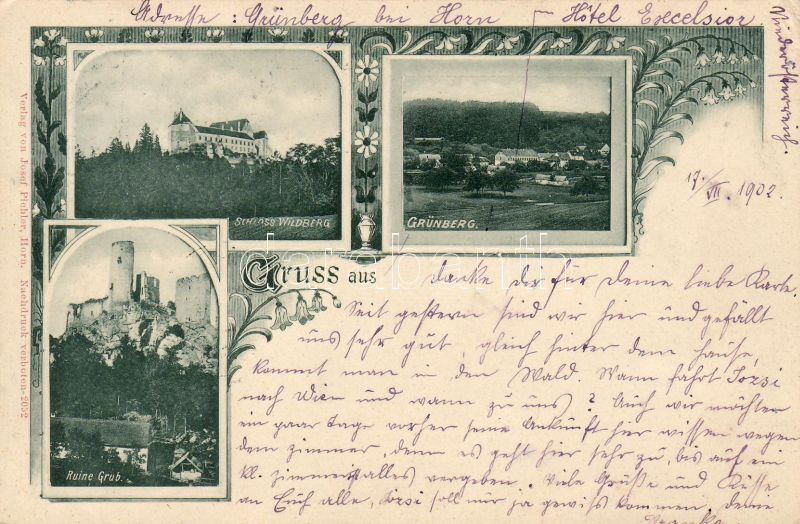 Adresse: Grünberg bei Horn Hôtel Excelsior
17./VII. 1902.
SCHLOSS WILDBERG.
GRÜNBERG.
Gruss aus
Ruine Grub.
Verlag von Josef Pichler, Horn. Nachdruck verboten-2052
darabanth
danke dir für deine liebe Karte.
Seit gestern sind wir hier und gefällt
uns sehr gut, gleich hinter dem hause,
kommt man in den Wald. Wann fährt Jozsi
nach Wien und wann zu uns? Auch wir möchten
ein paar Tage vorher seine Ankunft hier wissen wegen
dem zimmer, denn es geht hier sehr zu, bis auf ein
kl. zimmer alles vergeben. Viele Grüße und Küsse
an Euch alle, Jozsi soll nur ja gewiss kommen, deine